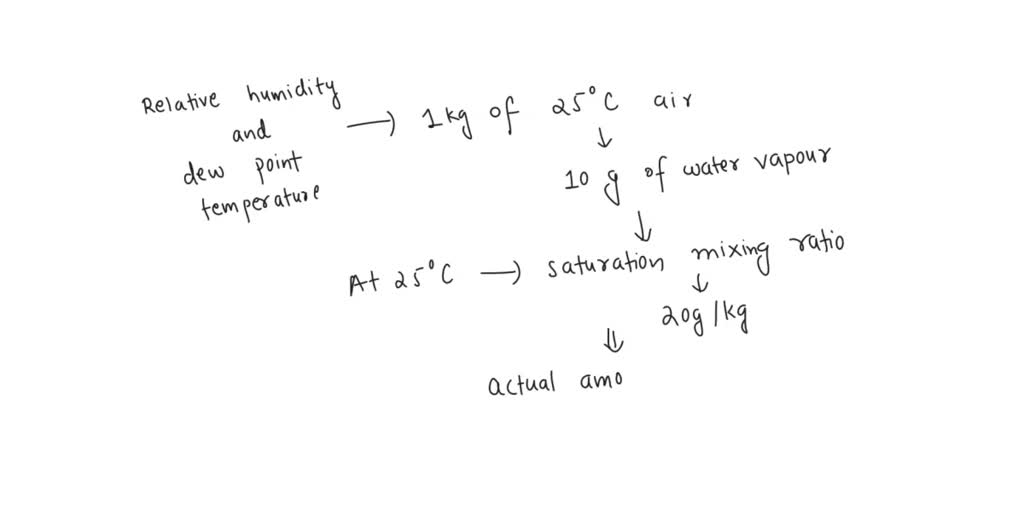 Relative humidity
and
dew point
temperature
→ 1kg of 25°C air
↓
10 g of water vapour
↓
At 25°C → saturation mixing ratio
↓
20g/kg
⇓
actual amo